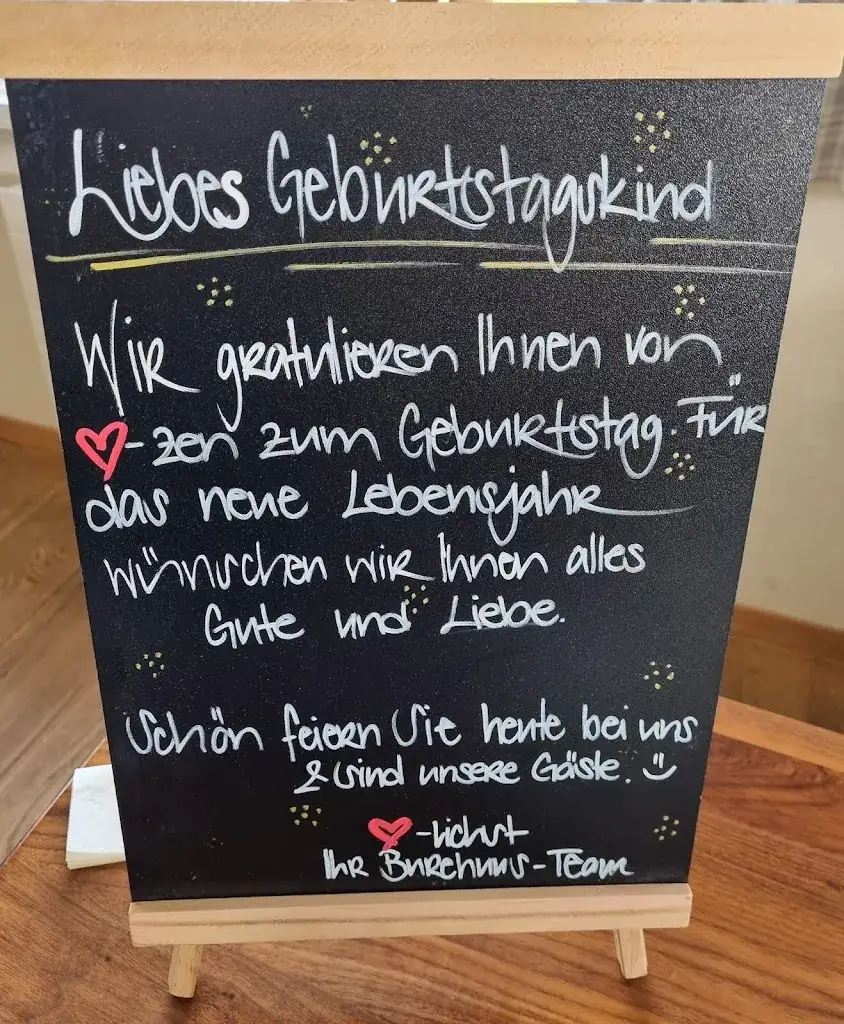 Liebes Geburtstagskind
Wir gratulieren Ihnen von
♥-zen zum Geburtstag. Für
das neue Lebensjahr
wünschen wir Ihnen alles
Gute und Liebe.
Schön feiern Sie heute bei uns
& sind unsere Gäste. :)
♥-lichst
Ihr Burehuus-Team